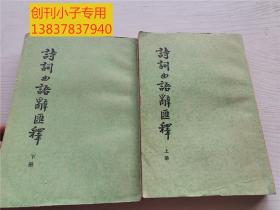 创刊小子专用
13837837940
詩詞曲語辭匯釋
下册
詩詞曲語辭匯釋
上册